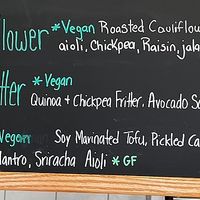 lower *Vegan Roasted Cauliflow
aioli, Chickpea, Raisin, jala
tter *Vegan
Quinoa + Chickpea Fritter, Avocado Sa
Vegan Soy Marinated Tofu, Pickled Ca
lantro, Sriracha Aioli *GF